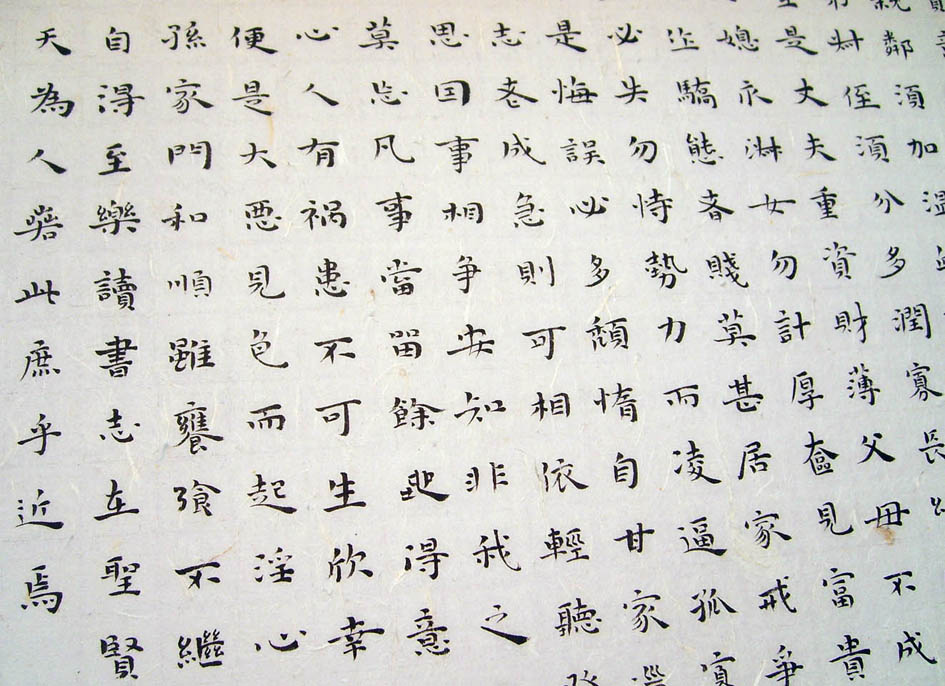 親鄰須加溫
叔侄須分多潤寡長
是丈夫重資財薄父母不成
媳求淑女勿計厚奩見富貴
作驕態者賤莫甚居家戒爭
必失勿恃勢力而凌逼孤寡
是悔誤必多頹惰自甘家
志老成急則可相依輕聽
思因事相爭安知非我之
莫忘凡事當留餘地得意
心人有禍患不可生欣幸
便是大惡見色而起淫心
孫家門和順雖饔飧不繼
自得至樂讀書志在聖賢
天為人若此庶乎近焉